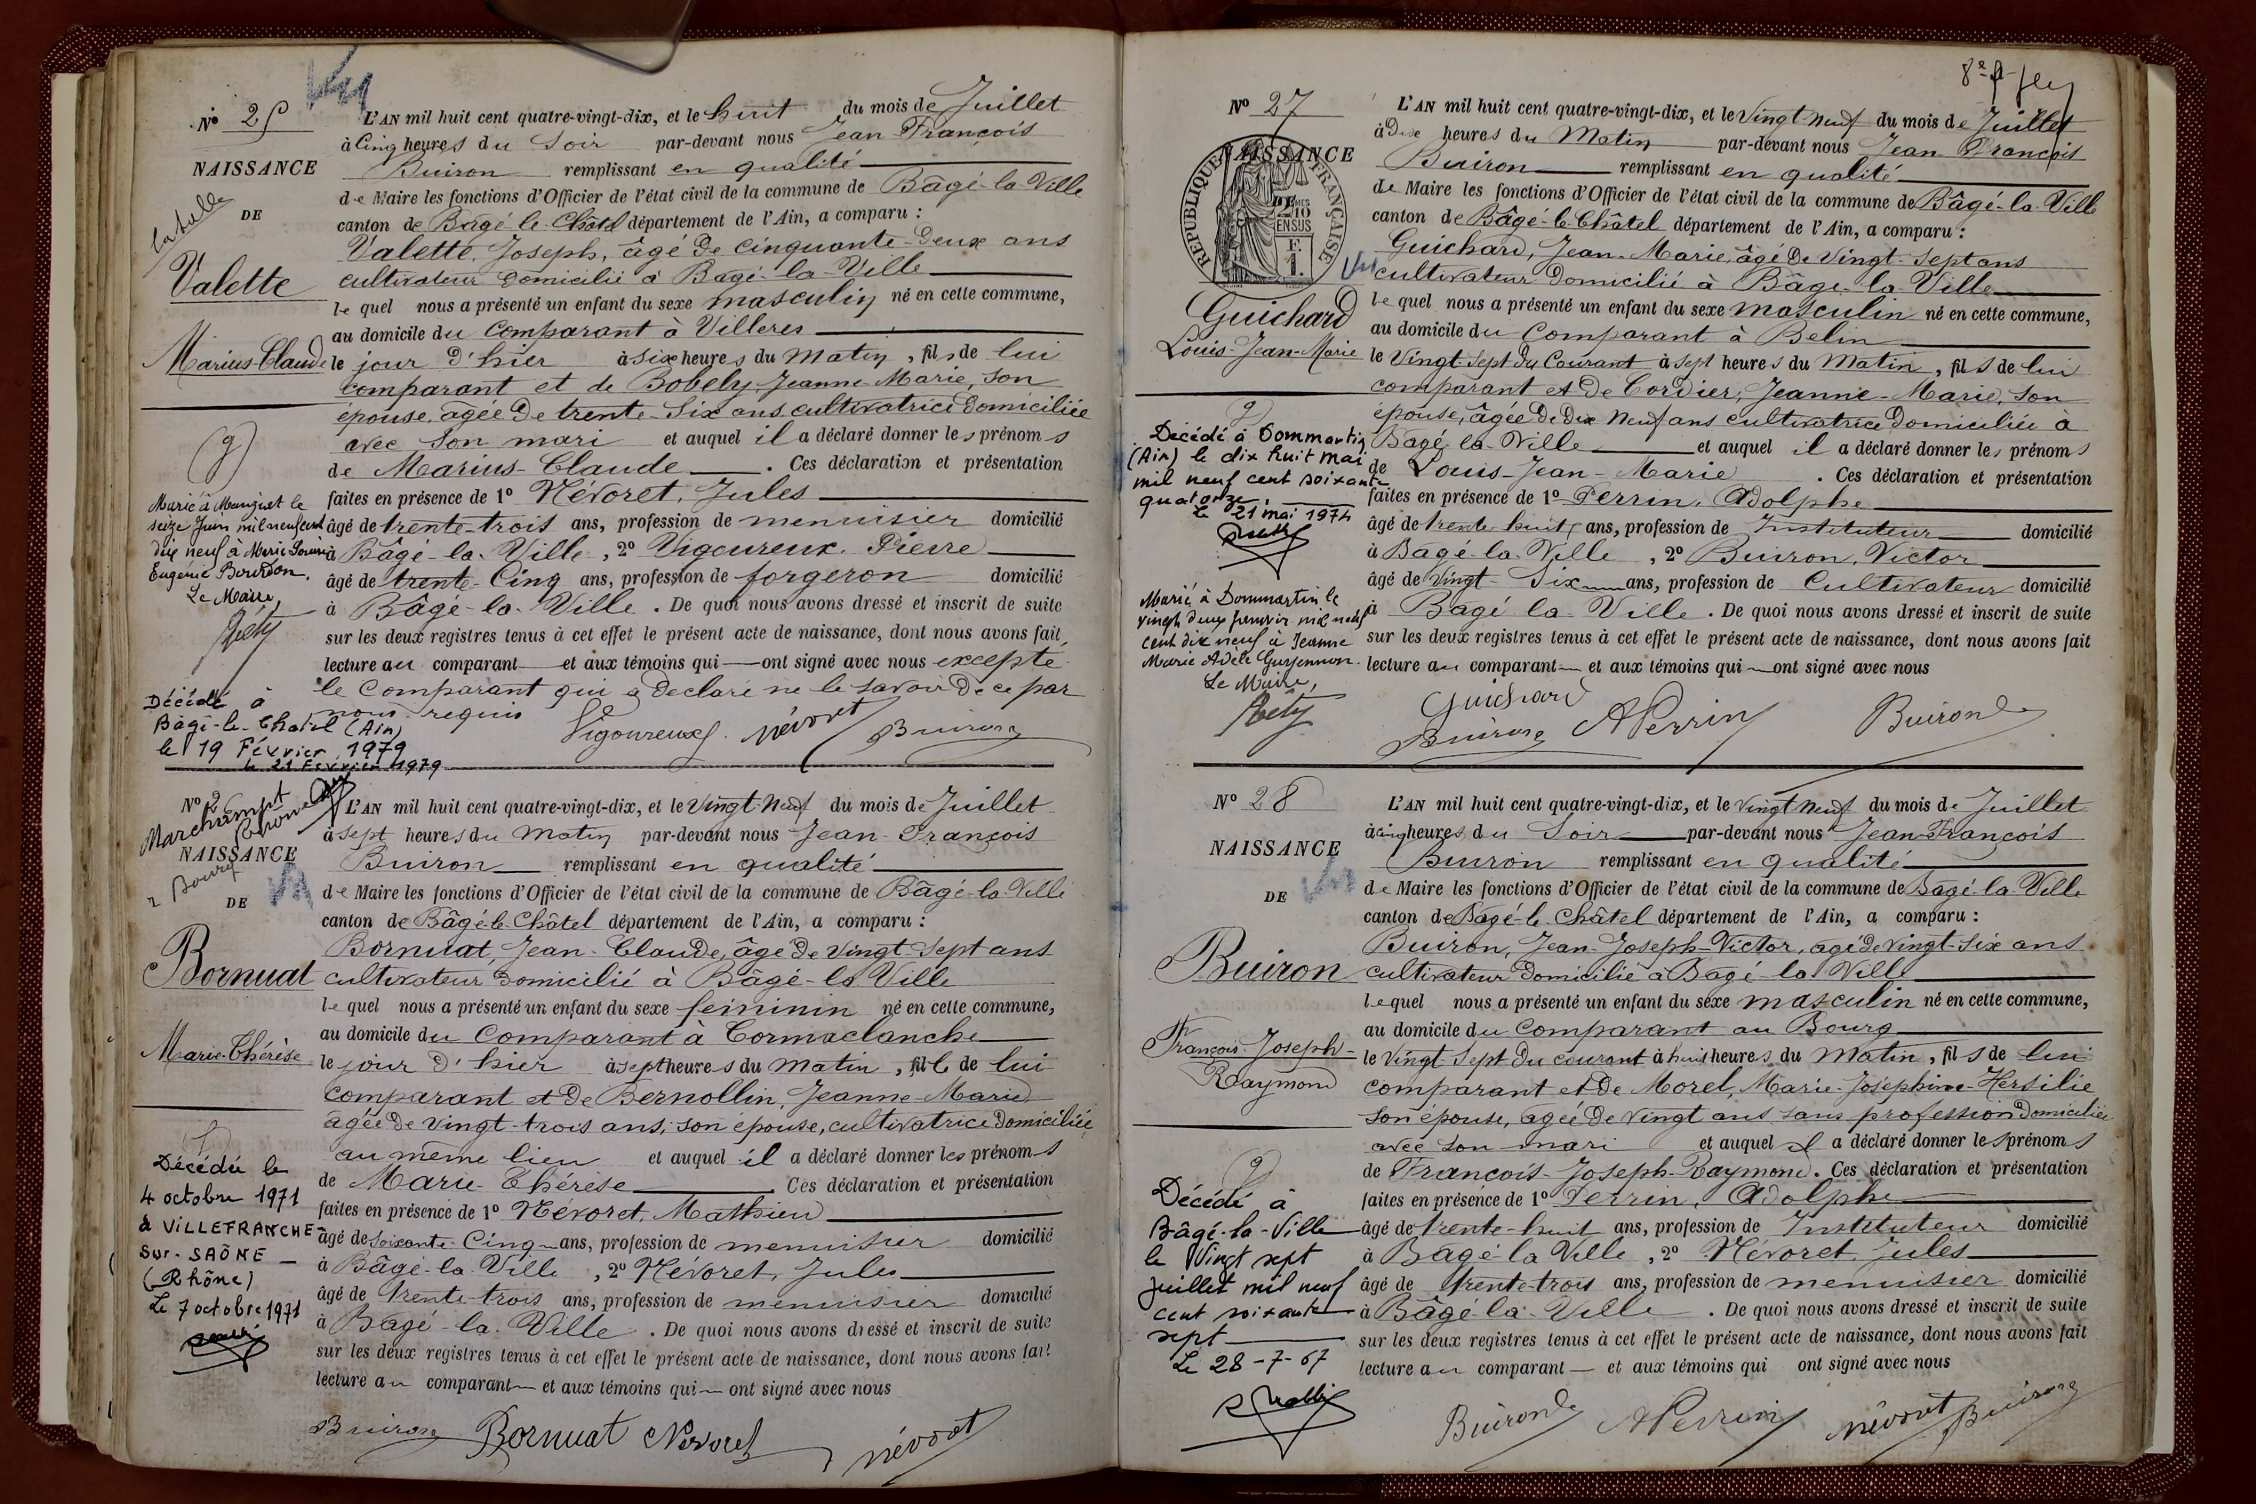 Nº 25
NAISSANCE
DE
Valette
Marius-Claude
Marié à Manziat le
seize Juin mil neuf cent
dix neuf à Marie Louise
Eugénie Bourdon.
Le Maire,
Décédé à
Bâgé-le-Chatel (Ain)
le 19 Février 1979
le 21 Février 1979
L'AN mil huit cent quatre-vingt-dix, et le huit du mois de Juillet
à Cinq heures du Soir par-devant nous Jean François
Buiron remplissant en qualité
de Maire les fonctions d'Officier de l'état civil de la commune de Bâgé-la-Ville
canton de Bâgé-le-Châtel département de l'Ain, a comparu :
Valette, Joseph, âgé de cinquante-deux ans
cultivateur domicilié à Bâgé-la-Ville
lequel nous a présenté un enfant du sexe masculin né en cette commune,
au domicile du Comparant à Villeres
le jour d'hier à six heures du Matin, fils de lui
comparant et de Bobely Jeanne-Marie, son
épouse, agée de trente-Six ans cultivatrice domiciliée
avec son mari et auquel il a déclaré donner les prénoms
de Marius-Claude. Ces déclaration et présentation
faites en présence de 1º Névoret, Jules
âgé de trente-trois ans, profession de menuisier domicilié
à Bâgé-la-Ville, 2º Vigoureux, Pierre
âgé de trente-Cinq ans, profession de forgeron domicilié
à Bâgé-la-Ville. De quoi nous avons dressé et inscrit de suite
sur les deux registres tenus à cet effet le présent acte de naissance, dont nous avons fait
lecture au comparant et aux témoins qui ont signé avec nous excepté
le Comparant qui a declaré ne le savoir de ce par
nous requis
Vigoureux névoret Buiron
Nº 2
Marchampt
NAISSANCE
DE
Bornuat
Marie-Thérèse
Décédée le
4 octobre 1971
à VILLEFRANCHE
sur-SAÔNE
(Rhône)
Le 7 octobre 1971
L'AN mil huit cent quatre-vingt-dix, et le Vingt-Neuf du mois de Juillet
à sept heures du Matin par-devant nous Jean-François
Buiron remplissant en qualité
de Maire les fonctions d'Officier de l'état civil de la commune de Bâgé-la-Ville
canton de Bâgé-le-Châtel département de l'Ain, a comparu :
Bornuat, Jean-Claude, âgé de vingt-Sept ans
cultivateur domicilié à Bâgé-la-Ville
lequel nous a présenté un enfant du sexe feminin né en cette commune,
au domicile du Comparant à Cormaclanche
le jour d'hier à sept heures du matin, fille de lui
comparant et de Bernollin, Jeanne-Marie
agée de vingt-trois ans, son épouse, cultivatrice domiciliée
au même lieu et auquel il a déclaré donner les prénoms
de Marie-Thérèse Ces déclaration et présentation
faites en présence de 1º Névoret, Mathieu
âgé de Soixante-Cinq ans, profession de menuisier domicilié
à Bâgé-la-Ville, 2º Névoret, Jules
âgé de trente-trois ans, profession de menuisier domicilié
à Bâgé-la-Ville. De quoi nous avons dressé et inscrit de suite
sur les deux registres tenus à cet effet le présent acte de naissance, dont nous avons fait
lecture au comparant et aux témoins qui ont signé avec nous
Buiron Bornuat Nevoret névoret
Nº 27
NAISSANCE
DE
REPUBLIQUE FRANÇAISE
Guichard
Louis-Jean-Marie
Décédé à Dommartin
(Ain) le dix huit mai
mil neuf cent soixante
quatorze.
Le 21 mai 1974
Marié à Dommartin le
vingt deux janvier mil neuf
cent dix neuf à Jeanne
Marie Adèle Guyennon.
Le Maire,
L'AN mil huit cent quatre-vingt-dix, et le Vingt-Neuf du mois de Juillet
à heures du Matin par-devant nous Jean François
Buiron remplissant en qualité
de Maire les fonctions d'Officier de l'état civil de la commune de Bâgé-la-Ville
canton de Bâgé-le-Châtel département de l'Ain, a comparu :
Guichard, Jean-Marie, âgé de Vingt-Sept ans
cultivateur domicilié à Bâgé-la-Ville
lequel nous a présenté un enfant du sexe masculin né en cette commune,
au domicile du Comparant à Belin
le Vingt-Sept du Courant à sept heures du Matin, fils de lui
comparant et de Cordier, Jeanne-Marie, son
épouse, âgée de Dix Neuf ans cultivatrice domiciliée à
Bâgé la Ville et auquel il a déclaré donner les prénoms
de Louis-Jean-Marie. Ces déclaration et présentation
faites en présence de 1º Perrin, Adolphe
âgé de trente-huit ans, profession de Instituteur domicilié
à Bâgé-la-Ville, 2º Buiron, Victor
âgé de Vingt-Six ans, profession de Cultivateur domicilié
à Bâgé la-Ville. De quoi nous avons dressé et inscrit de suite
sur les deux registres tenus à cet effet le présent acte de naissance, dont nous avons fait
lecture au comparant et aux témoins qui ont signé avec nous
Guichard
Buiron APerrin Buiron
Nº 28
NAISSANCE
DE
Buiron
François-Joseph-
Raymond
Décédé à
Bâgé-la-Ville
le Vingt sept
juillet mil neuf
cent soixante
sept
Le 28-7-67
L'AN mil huit cent quatre-vingt-dix, et le Vingt Neuf du mois de Juillet
à cinq heures du Soir par-devant nous Jean-François
Buiron remplissant en qualité
de Maire les fonctions d'Officier de l'état civil de la commune de Bâgé-la-Ville
canton de Bâgé-le-Châtel département de l'Ain, a comparu :
Buiron, Jean-Joseph-Victor, agé de vingt-six ans
cultivateur domicilié à Bâgé-la Ville
lequel nous a présenté un enfant du sexe masculin né en cette commune,
au domicile du Comparant au Bourg
le Vingt-Sept du courant à huit heures du Matin, fils de lui
comparant et de Morel, Marie-Joséphine-Hersilie
son épouse, agée de vingt ans sans profession domiciliée
avec son mari et auquel il a déclaré donner les prénoms
de François-Joseph-Raymond. Ces déclaration et présentation
faites en présence de 1º Perrin, Adolphe
âgé de trente-huit ans, profession de Instituteur domicilié
à Bâgé-la Ville, 2º Névoret, Jules
âgé de trente-trois ans, profession de menuisier domicilié
à Bâgé-la-Ville. De quoi nous avons dressé et inscrit de suite
sur les deux registres tenus à cet effet le présent acte de naissance, dont nous avons fait
lecture au comparant et aux témoins qui ont signé avec nous
Buiron APerrin névoret Buiron